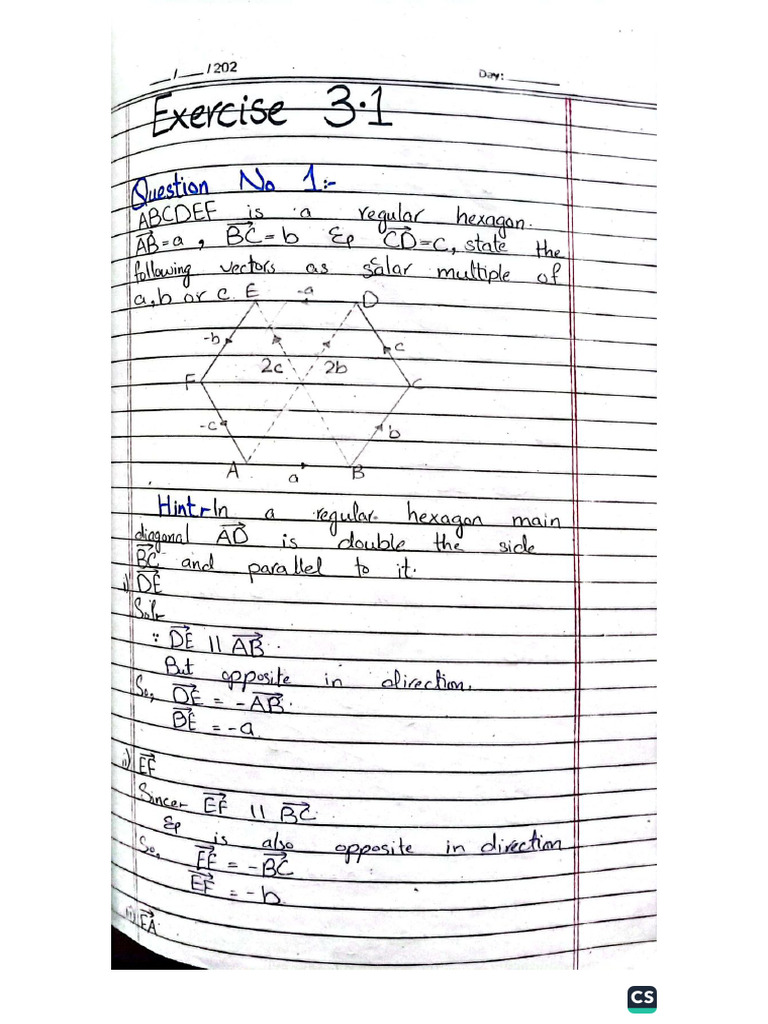 __/__/202
Day: ______
Exercise 3.1
Question No 1:-
ABCDEF is a regular hexagon.
AB⃗=a, BC⃗=b & CD⃗=c, state the
following vectors as scalar multiple of
a,b or c.
E -a D
-b c
2c 2b
F C
-c b
A B
a
Hint:- In a regular hexagon main
diagonal AD⃗ is double the side
BC⃗ and parallel to it.
i) DE⃗
Sol:-
∵ DE⃗ || AB⃗.
But opposite in direction.
So, DE⃗ = -AB⃗.
BE⃗ = -a
ii) EF⃗
Since:- EF⃗ || BC⃗.
& is also opposite in direction
So, EF⃗ = -BC⃗
EF⃗ = -b
iii) FA⃗
CS